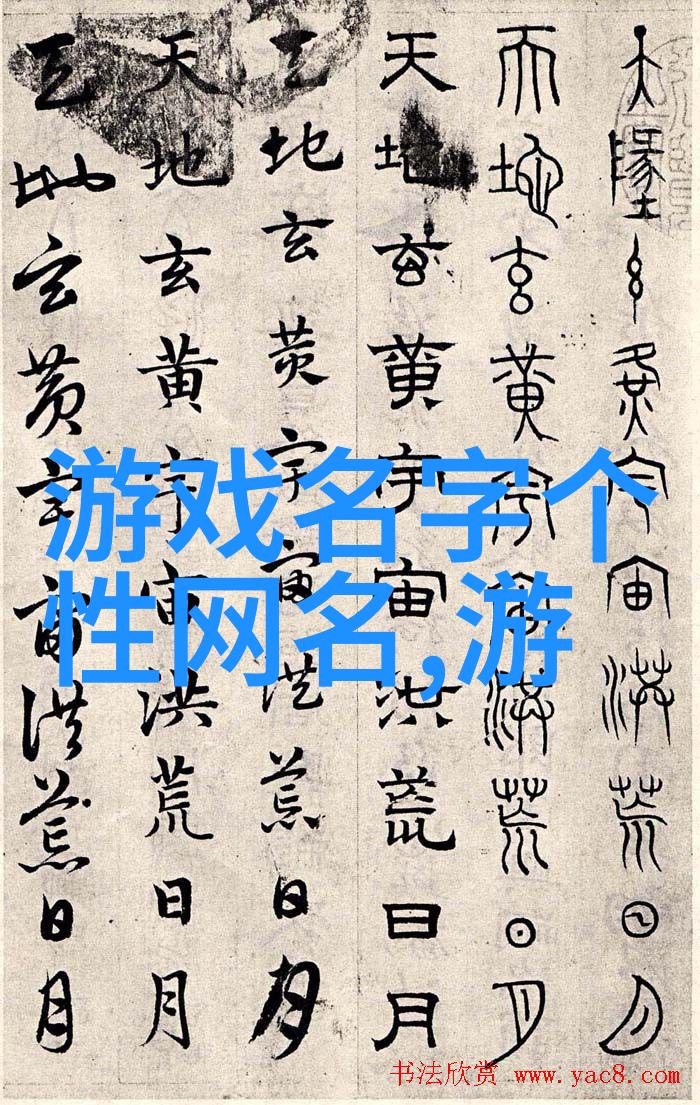 天墬玄黃宇宙洪荒日月
天地玄黃宇宙洪荒日月
天地玄黃宇宙洪荒日月
天地玄黄宇宙洪荒日月
天地玄黄宇宙洪荒日月
天地玄黄宇宙洪荒日月
游戏名字个
性网名,游
书法欣赏 www.yac8.com